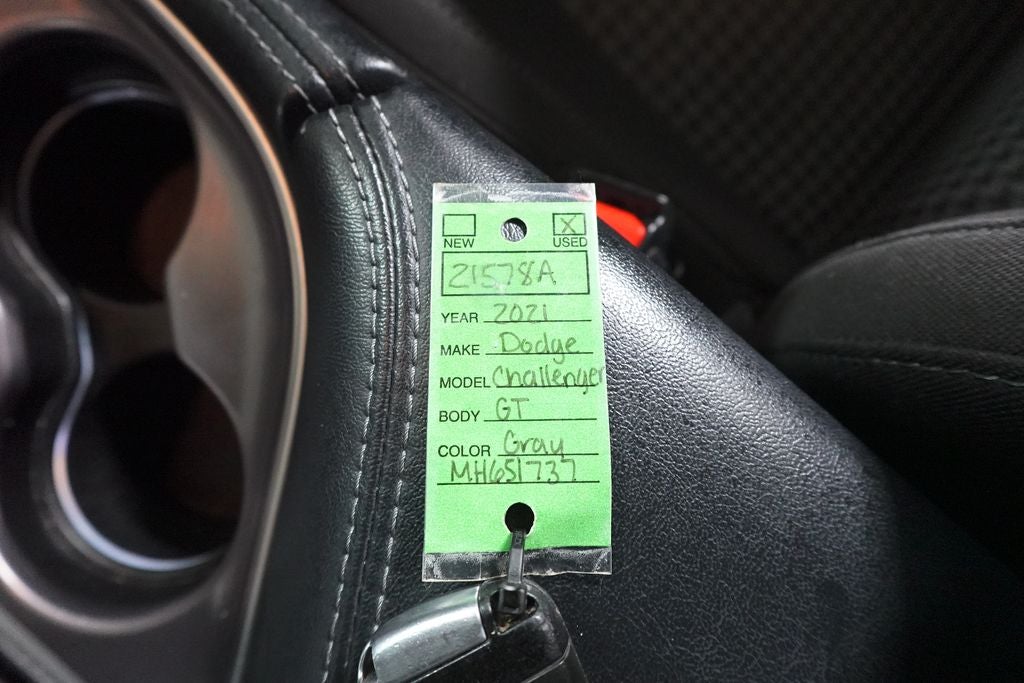 NEW USED
21578A
YEAR 2021
MAKE Dodge
MODEL Challenger
BODY GT
COLOR Gray
MH651737